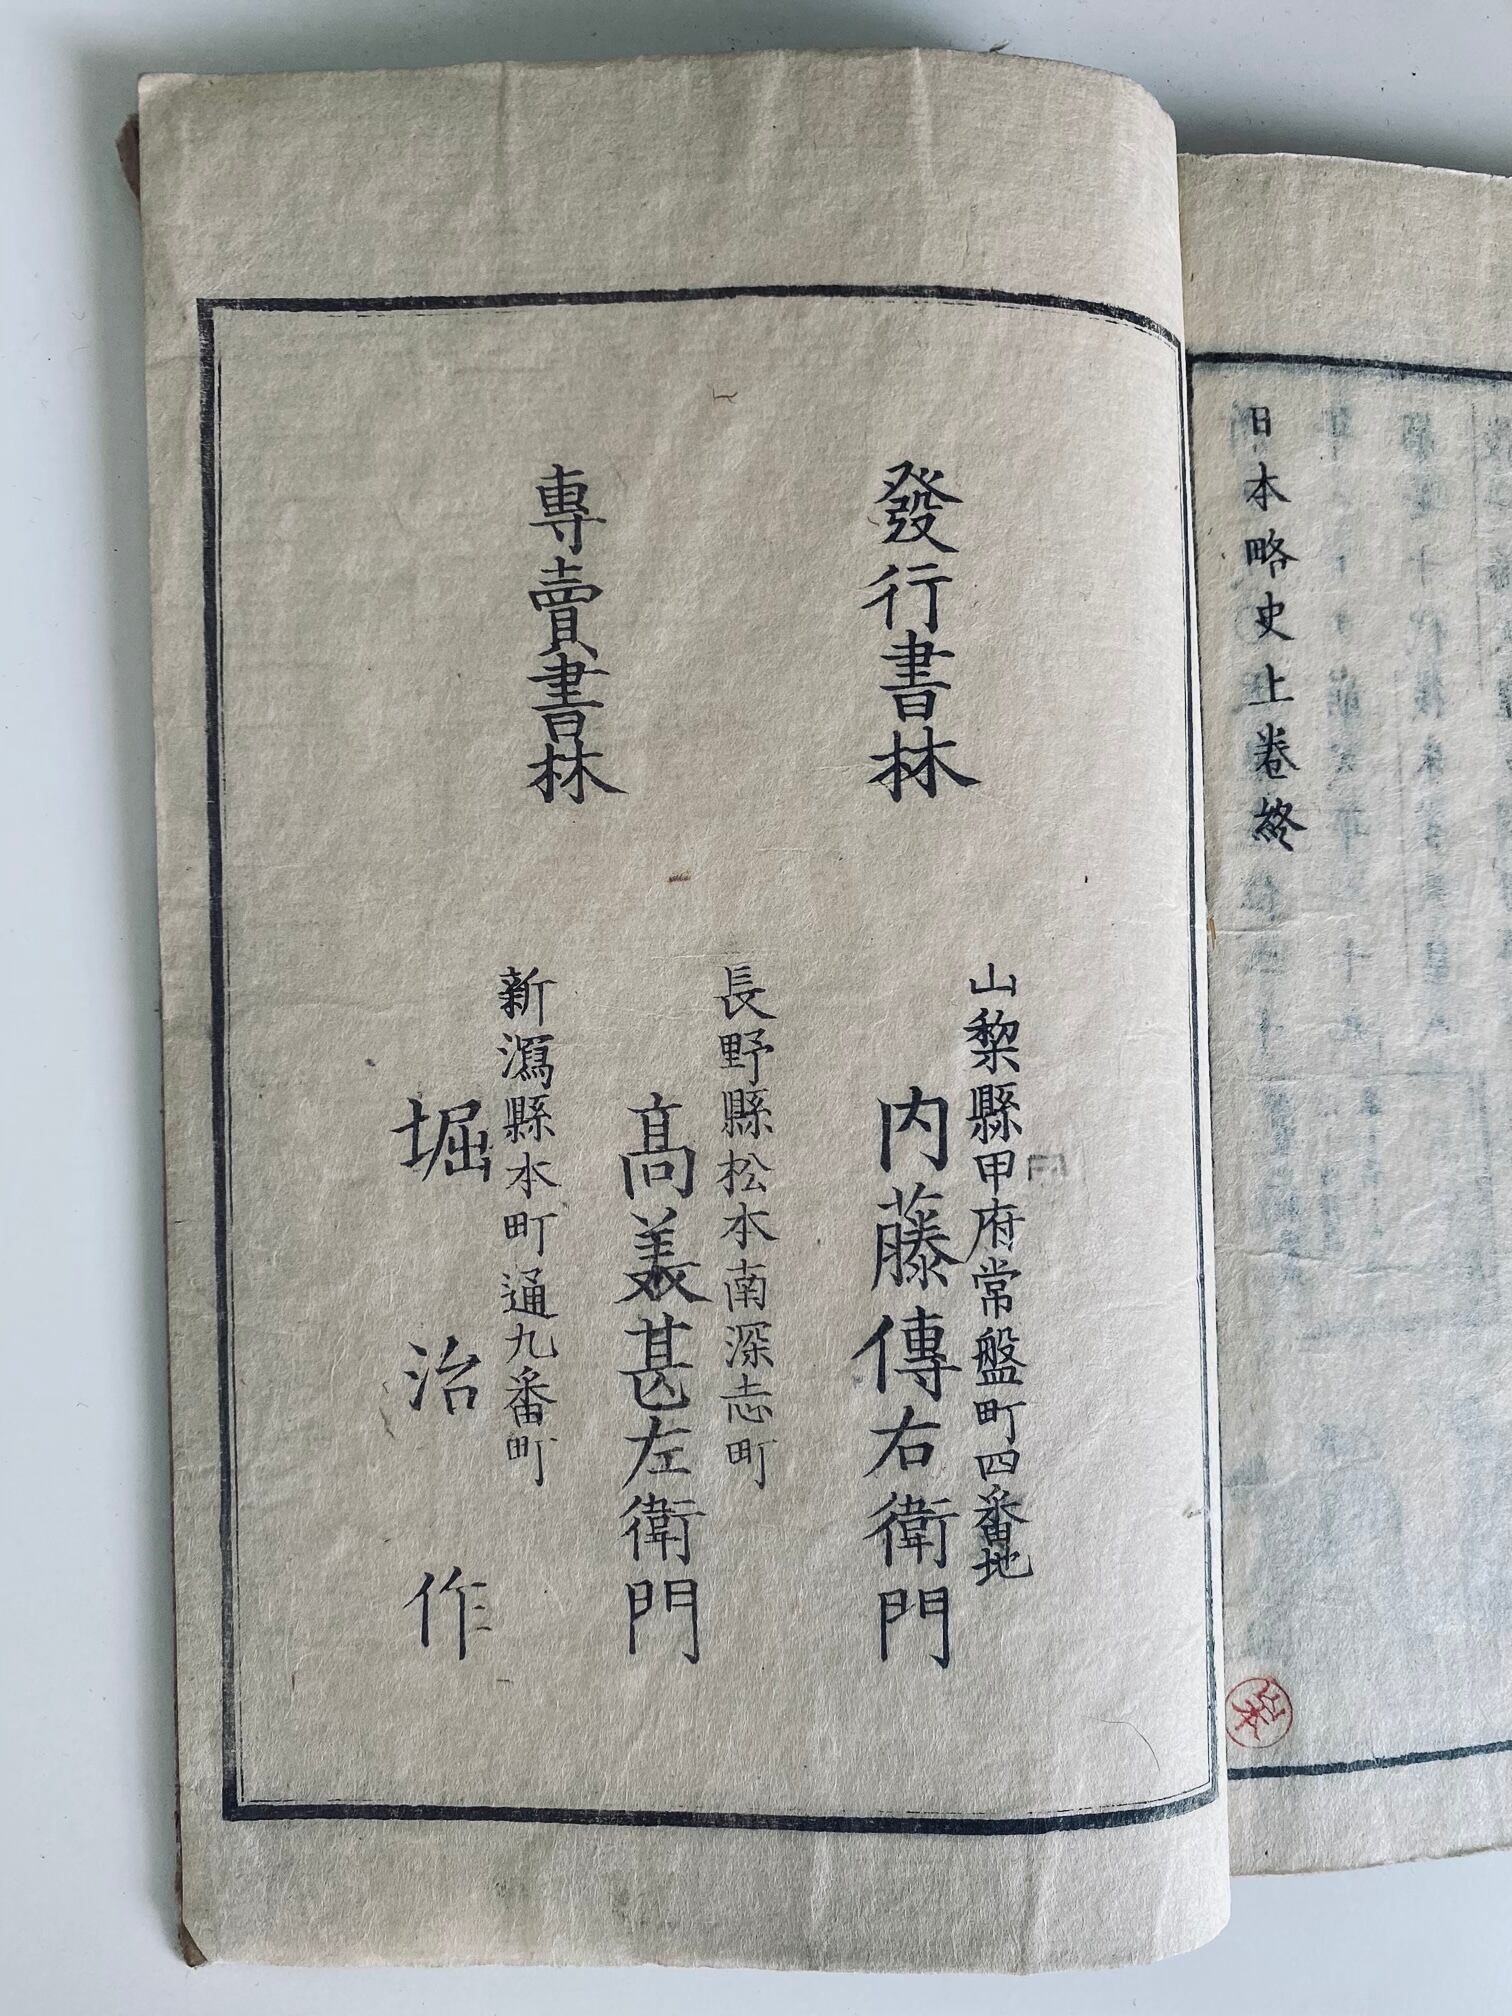 日本略史上卷終
山本
發行書林
山黎縣甲府常盤町四番地
内藤傳右衛門
專賣書林
長野縣松本南深志町
髙美甚左衛門
新瀉縣本町通九番町
堀治作